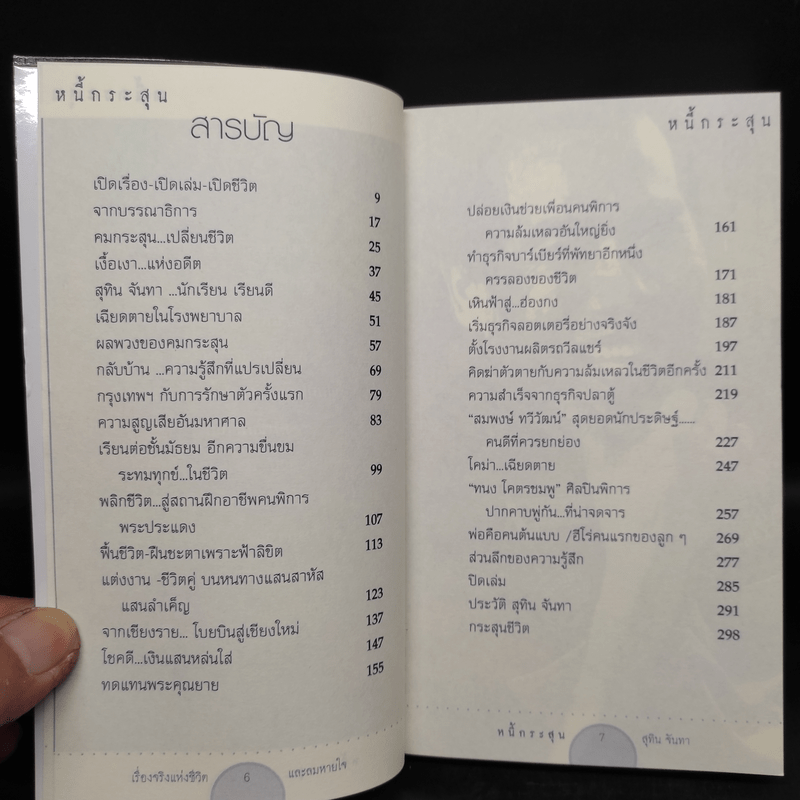 หนี้กระสุน
สารบัญ
เปิดเรื่อง-เปิดเล่ม-เปิดชีวิต 9
จากบรรณาธิการ 17
คมกระสุน...เปลี่ยนชีวิต 25
เงื้อเงา...แห่งอดีต 37
สุทิน จันทา ...นักเรียน เรียนดี 45
เฉียดตายในโรงพยาบาล 51
ผลพวงของคมกระสุน 57
กลับบ้าน ...ความรู้สึกที่แปรเปลี่ยน 69
กรุงเทพฯ กับการรักษาตัวครั้งแรก 79
ความสูญเสียอันมหาศาล 83
เรียนต่อชั้นมัธยม อีกความขื่นขม
ระทมทุกข์...ในชีวิต 99
พลิกชีวิต...สู่สถานฝึกอาชีพคนพิการ
พระประแดง 107
ฟื้นชีวิต-ฝืนชะตาเพราะฟ้าลิขิต 113
แต่งงาน -ชีวิตคู่ บนหนทางแสนสาหัส
แสนลำเค็ญ 123
จากเชียงราย... โบยบินสู่เชียงใหม่ 137
โชคดี...เงินแสนหล่นใส่ 147
ทดแทนพระคุณยาย 155
เรื่องจริงแห่งชีวิต 6 และลมหายใจ
หนี้กระสุน
ปล่อยเงินช่วยเพื่อนคนพิการ
ความล้มเหลวอันใหญ่ยิ่ง 161
ทำธุรกิจบาร์เบียร์ที่พัทยาอีกหนึ่ง
ครรลองของชีวิต 171
เหินฟ้าสู่...ฮ่องกง 181
เริ่มธุรกิจลอตเตอรี่อย่างจริงจัง 187
ตั้งโรงงานผลิตรถวีลแชร์ 197
คิดฆ่าตัวตายกับความล้มเหลวในชีวิตอีกครั้ง 211
ความสำเร็จจากธุรกิจปลาตู้ 219
"สมพงษ์ ทวีวัฒน์" สุดยอดนักประดิษฐ์......
คนดีที่ควรยกย่อง 227
โคม่า...เฉียดตาย 247
"ทนง โคตรชมพู" ศิลปินพิการ
ปากคาบพู่กัน...ที่น่าจดจาร 257
พ่อคือคนต้นแบบ /ฮีโร่คนแรกของลูก ๆ 269
ส่วนลึกของความรู้สึก 277
ปิดเล่ม 285
ประวัติ สุทิน จันทา 291
กระสุนชีวิต 298
หนี้กระสุน 7 สุทิน จันทา